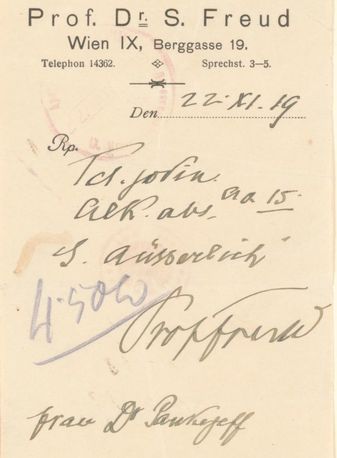 Prof. Dr. S. Freud
Wien IX, Berggasse 19.
Telephon 14362. Sprechst. 3—5.
Den 22.XI.19
Rp.
Tct. jodin.
Alk. abs. aa 15.
S. Äusserlich
Prof Freud
Frau Dr Pankejeff